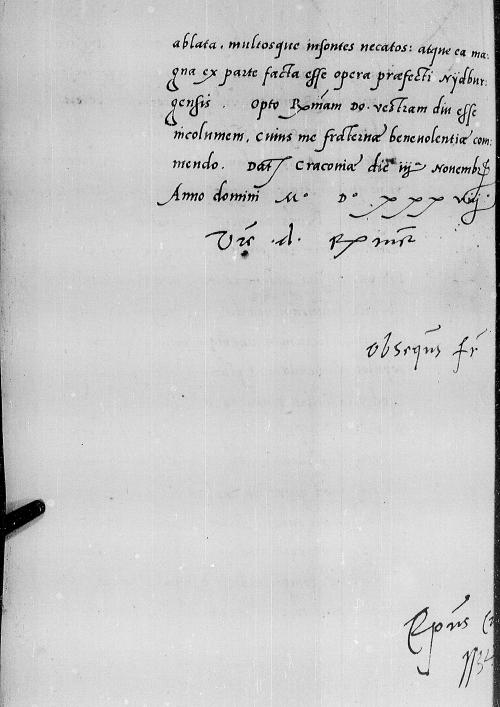 ablata, multosque insontes necatos: atque ea ma:
gna ex parte facta esse opera præfecti Nydbur:
gensis. Opto Rmam Do. vestram diu esse
incolumem, cuius me fraternæ benevolentiæ com:
mendo. Dat Cracoviæ die iij Novembr
Anno domini M° D° xxx
Vrē .d. Rxmē
Obsequēs fr
Epūs